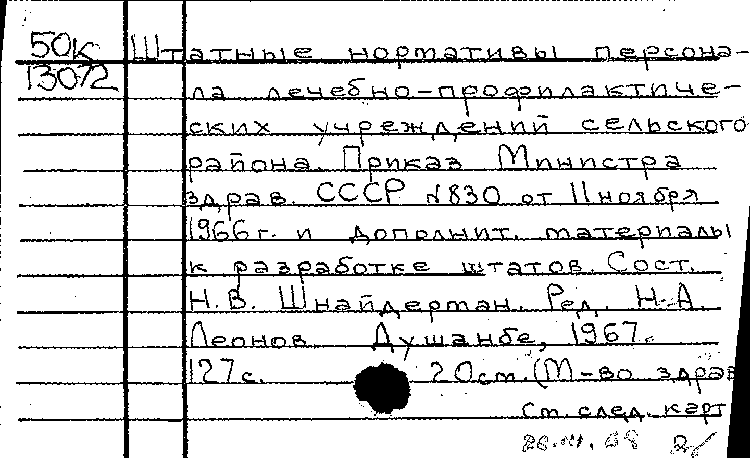 50к Штатные нормативы персона-
13072 ла лечебно-профилактиче-
ских учреждений сельского
района. Приказ Министра
здрав. СССР №830 от 11 ноября
1966 г. и дополнит. материалы
к разработке штатов. Сост.
Н.В. Шнайдерман. Ред. Н.А.
Леонов. Душанбе, 1967.
127 с. 20 см. (М-во здрав
См. след. карт